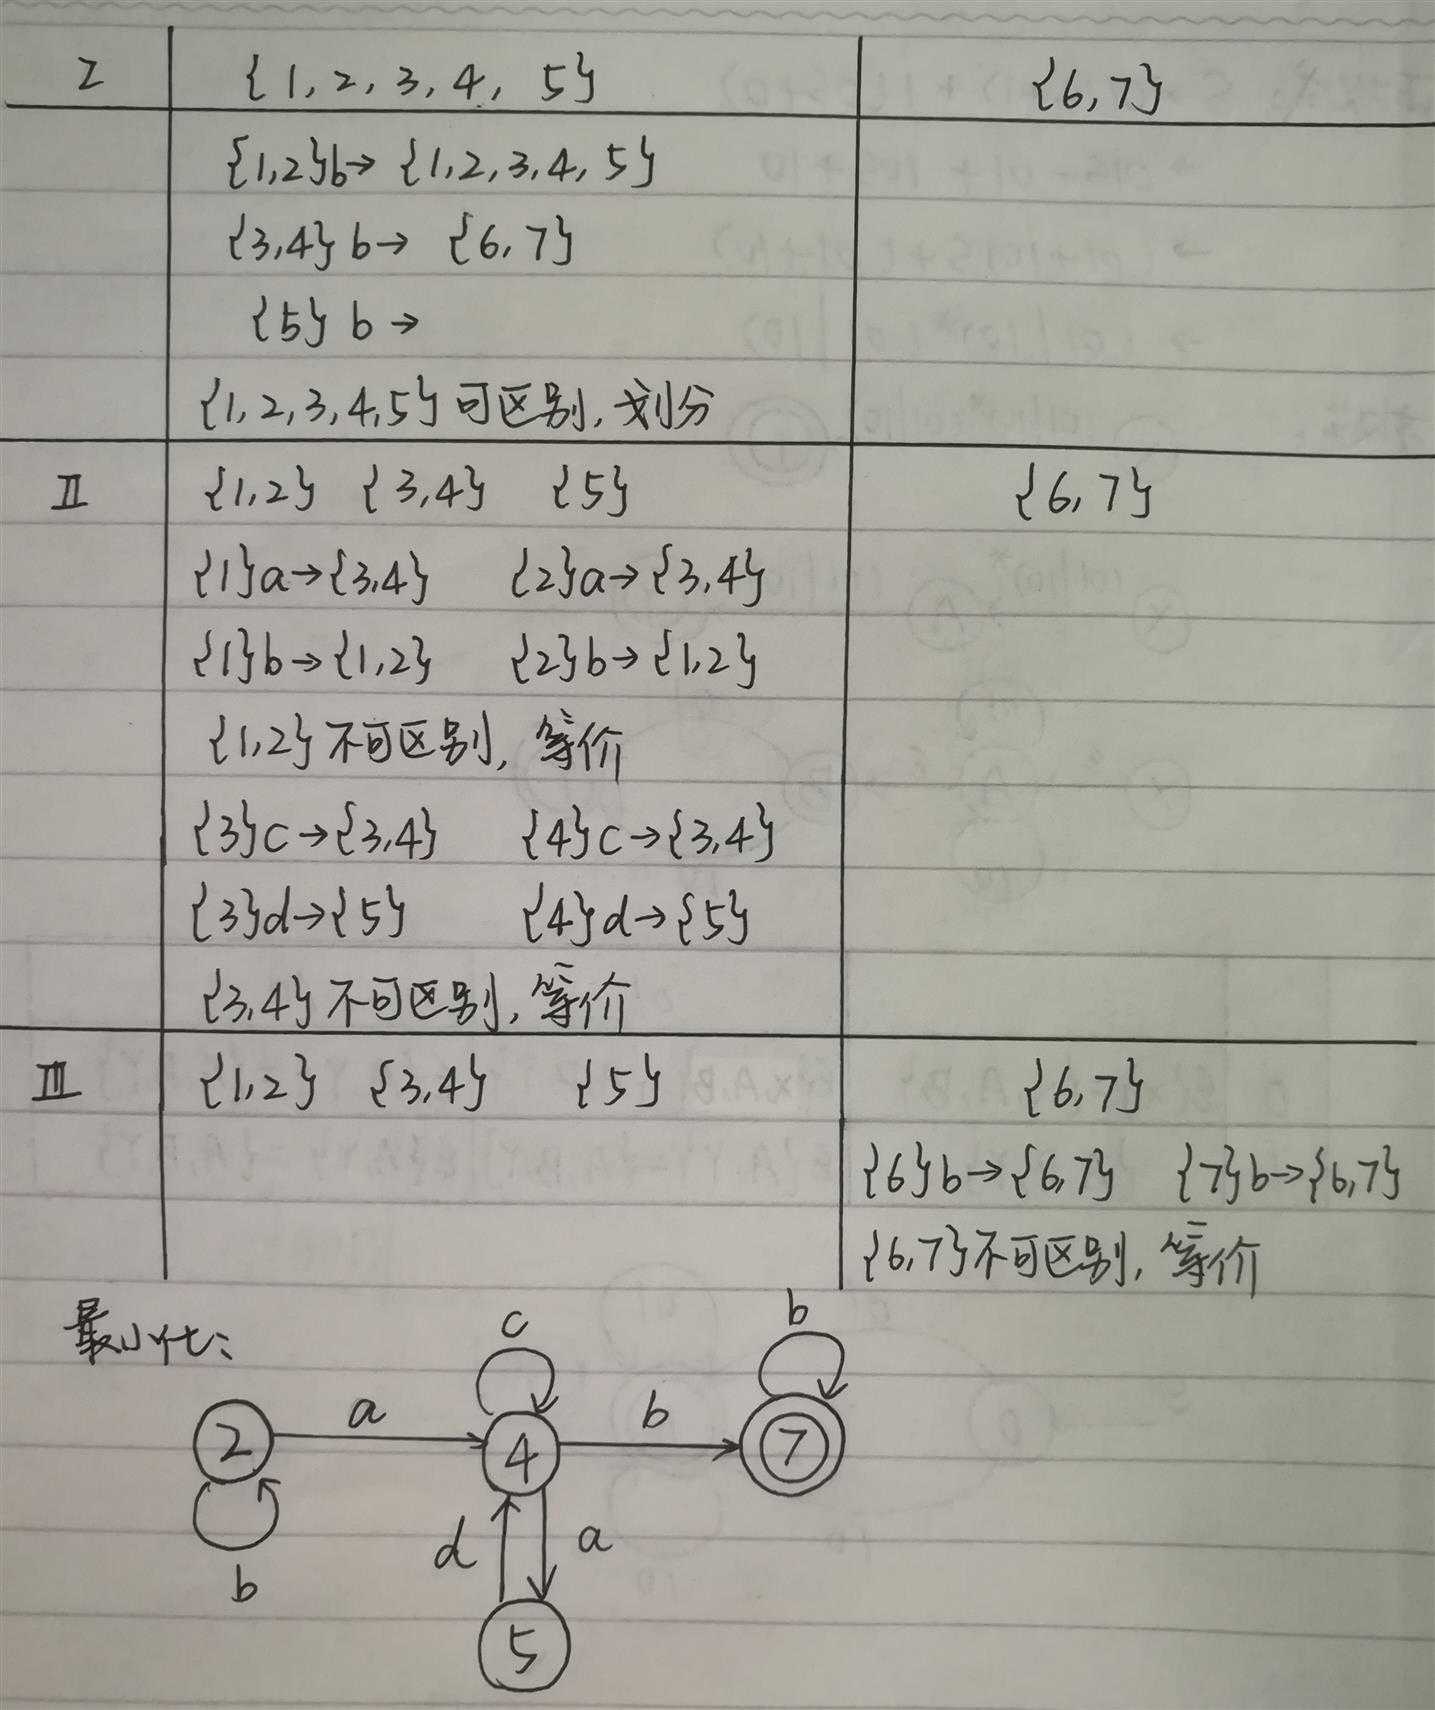 I {1,2,3,4,5} {6,7}
{1,2}b→ {1,2,3,4,5}
{3,4}b→ {6,7}
{5}b→
{1,2,3,4,5}可区别,划分
II {1,2} {3,4} {5} {6,7}
{1}a→{3,4} {2}a→{3,4}
{1}b→{1,2} {2}b→{1,2}
{1,2}不可区别,等价
{3}c→{3,4} {4}c→{3,4}
{3}d→{5} {4}d→{5}
{3,4}不可区别,等价
III {1,2} {3,4} {5} {6,7}
{6}b→{6,7} {7}b→{6,7}
{6,7}不可区别,等价
最小化:
c b
2 a 4 b 7
b d a
5